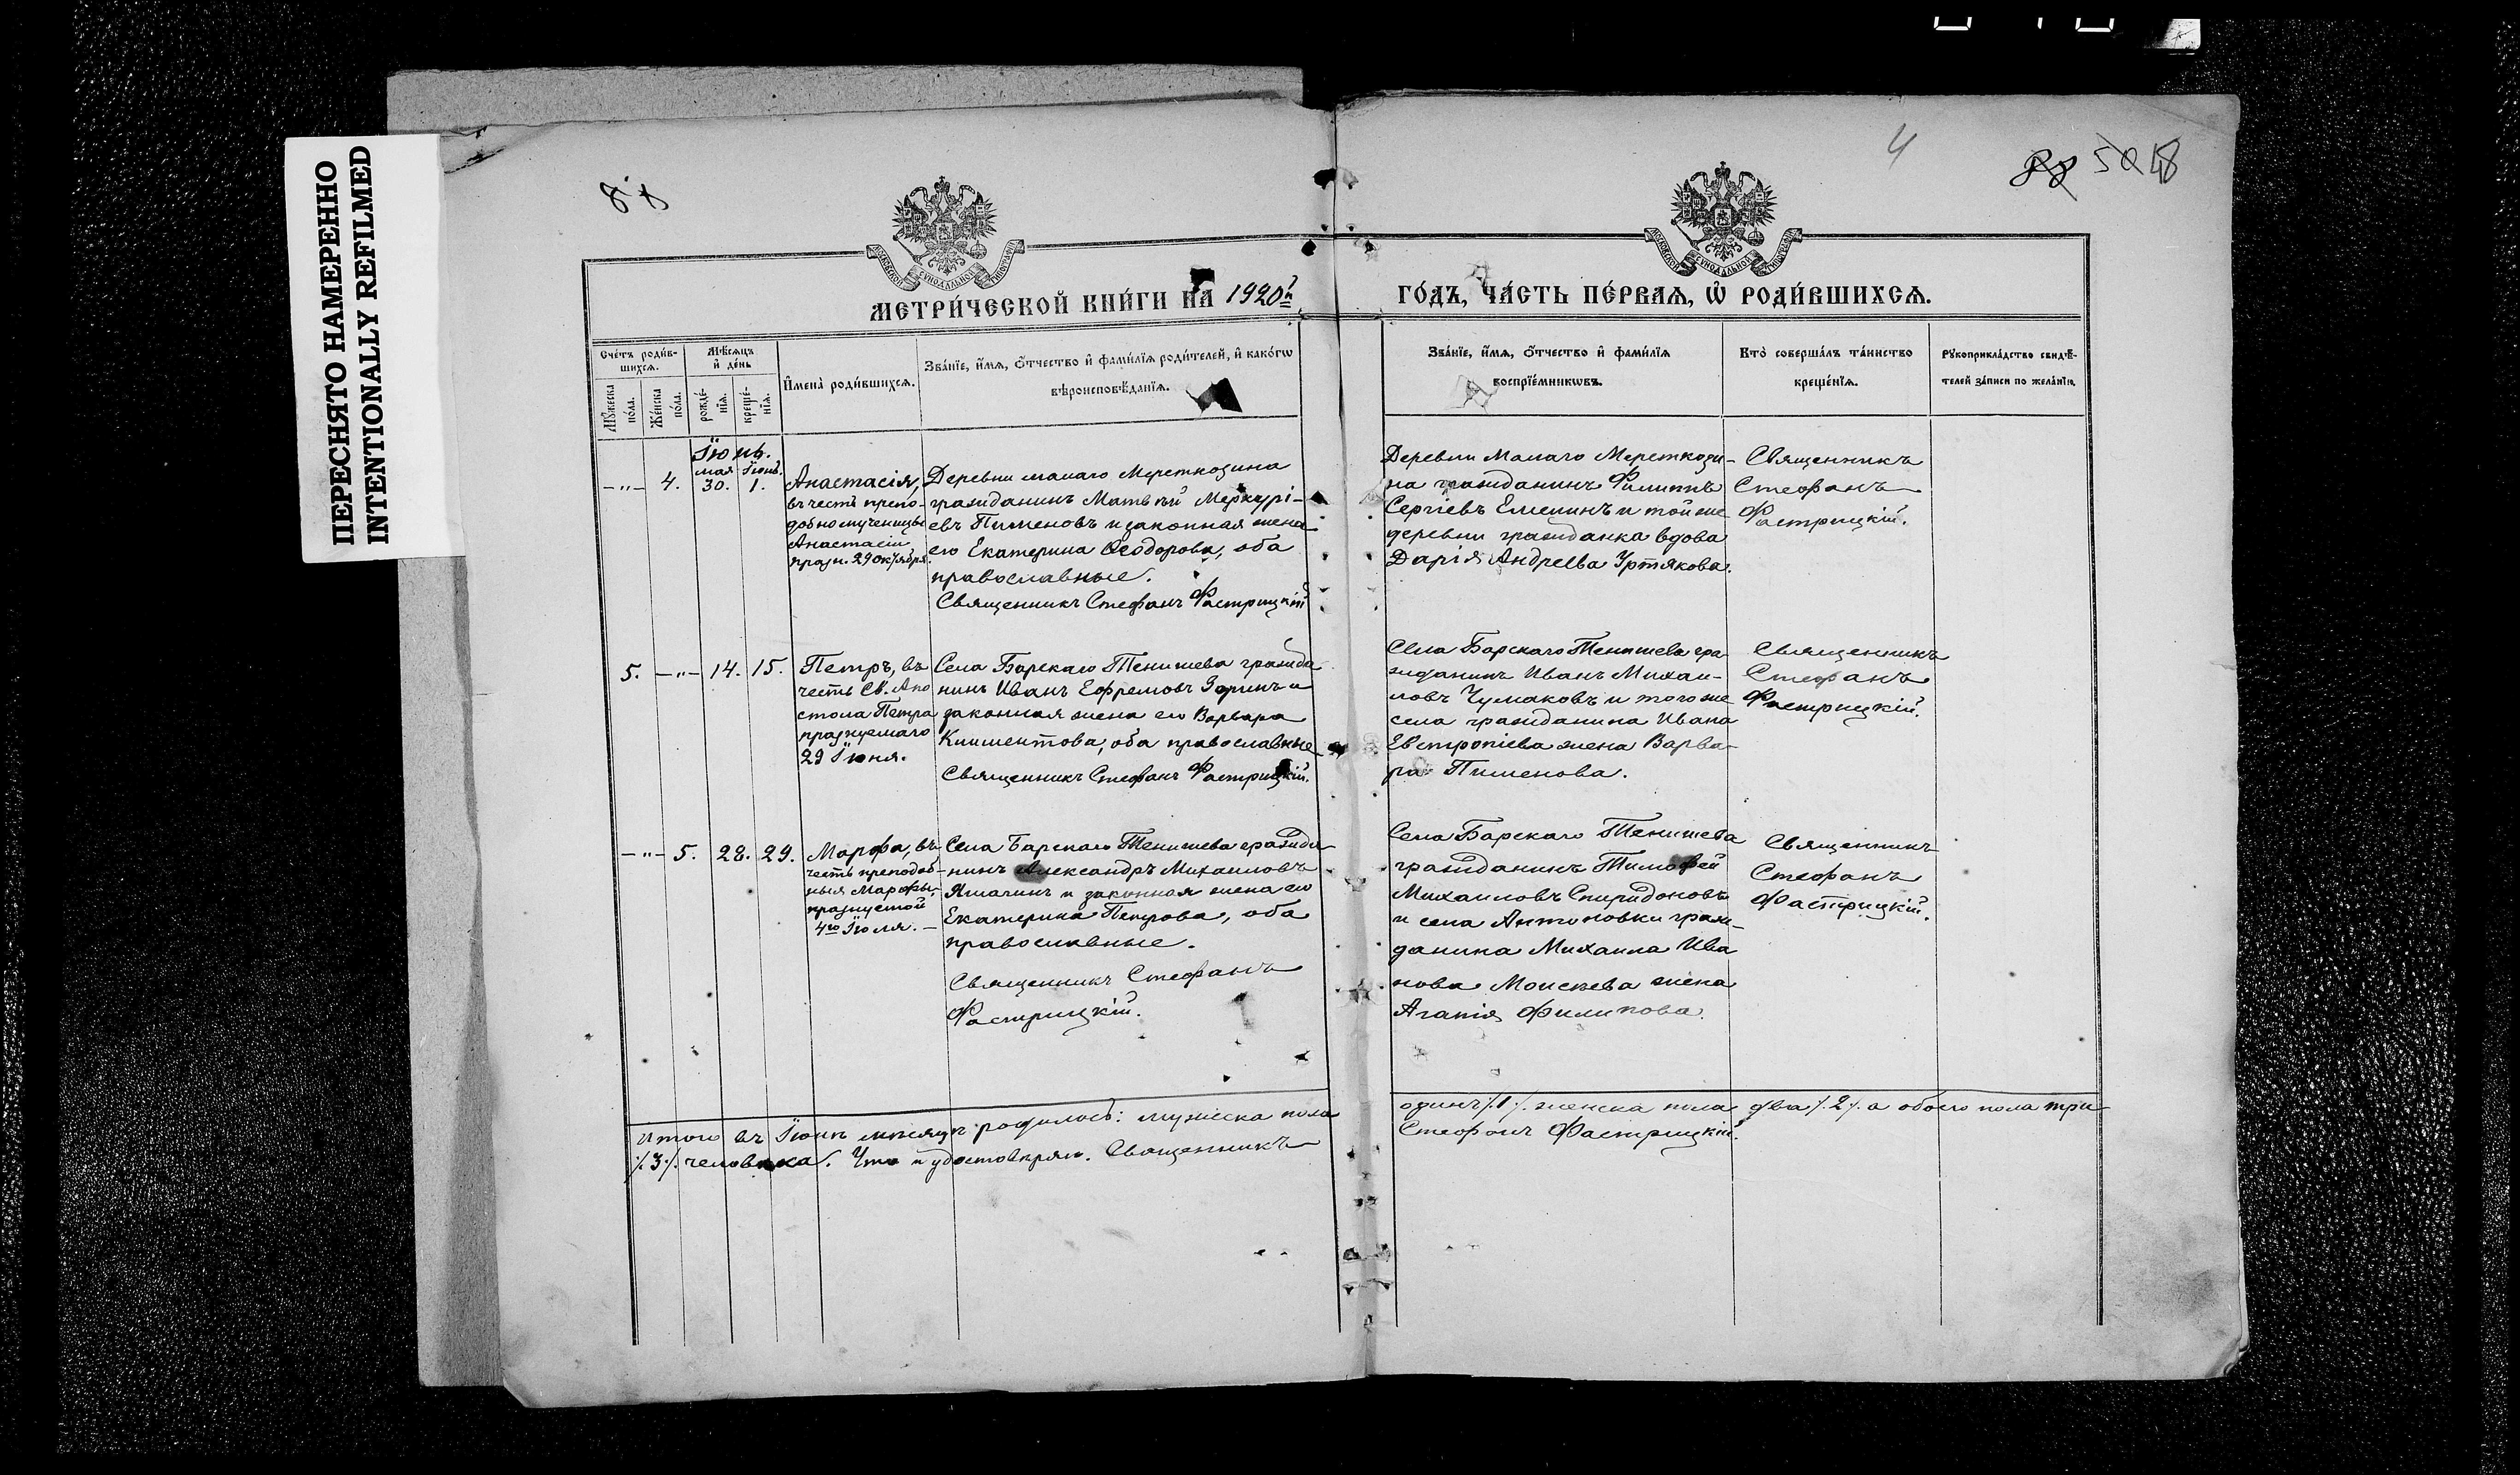 ПЕРЕСНЯТО НАМЕРЕННО
INTENTIONALLY REFILMED
4
50 48
МЕТРИ́ЧЕСКОЙ КНИ́ГИ НА 1920й
ГО́ДЪ, ЧА́СТЬ ПЕ́РВАЯ, Ѽ РОДИ́ВШИХСЯ.
Сче́тъ роди́в-
шихся.
Мꙋ́жеска
по́ла.
Же́нска
по́ла.
Мѣ́сяцъ
и҆ де́нь
рожде́-
нїя.
креще́-
нїя.
И҆мена̀ роди́вшихся.
Зва́нїе, и҆́мя, ѻ҆́тчество и҆ фами́лїя роди́телей, и҆ како́гѡ
вѣроисповѣ́данїя.
Зва́нїе, и҆́мя, ѻ҆́тчество и҆ фами́лїя
воспрїе́мникѡвъ.
Кто̀ соверша́лъ та́инство
креще́нїя.
Рꙋкоприкла́дство свидѣ́-
телей за́писи по жела́нїю.
Іюнь.
мая Іюнь.
—"— 4. 30. 1.
Анастасія,
въ честь препо-
добномученицы
Анастасіи
празн. 29 октября.
Деревни малаго Мереткозина
гражданинъ Матвѣй Меркурі-
евъ Пименовъ и законная жена
его Екатерина Ѳеодорова, оба
православные.
Священникъ Стефанъ Фастрицкій
Деревни Малаго Мереткози-
на гражданинъ Филиппъ
Сергіевъ Емелинъ и той же
деревни гражданка вдова
Дарія Андреева Уртякова.
Священникъ
Стефанъ
Фастрицкій.
5. —"— 14. 15.
Петръ, въ
честь Св. Апо
стола Петра
празнуемаго
29 Іюня.
Села Барскаго Тенишева гражда
нинъ Иванъ Ефремовъ Зоринъ и
законная жена его Варвара
Климентова, оба православные
Священникъ Стефанъ Фастрицкій.
Села Барскаго Тенишева гра
жданинъ Иванъ Михаи-
ловъ Чумаковъ и того же
села гражданина Ивана
Евстропіева жена Варва-
ра Пименова.
Священникъ
Стефанъ
Фастрицкій.
—"— 5. 28. 29.
Марфа, въ
честь преподоб-
ныя Марфы,
празнуемой
4го Іюля. —
Села Барскаго Тенишева гражда-
нинъ Александръ Михаиловъ
и законная жена его
Екатерина Петрова, оба
православные.
Священникъ Стефанъ
Фастрицкій.
Села Барскаго Тенишева
гражданинъ Тимофей
Михаиловъ Спиридоновъ
и села Антоновки граж-
данина Михаила Ива
нова Моисеева жена
Агапія Филипова.
Священникъ
Стефанъ
Фастрицкій.
Итого въ Іюнѣ мѣсяцѣ родилось: мужеска пола
одинъ /.1/. женска пола два /.2/. а обоего пола три
/.3/. человѣка. Что и удостовѣряю. Священникъ
Стефанъ Фастрицкій.